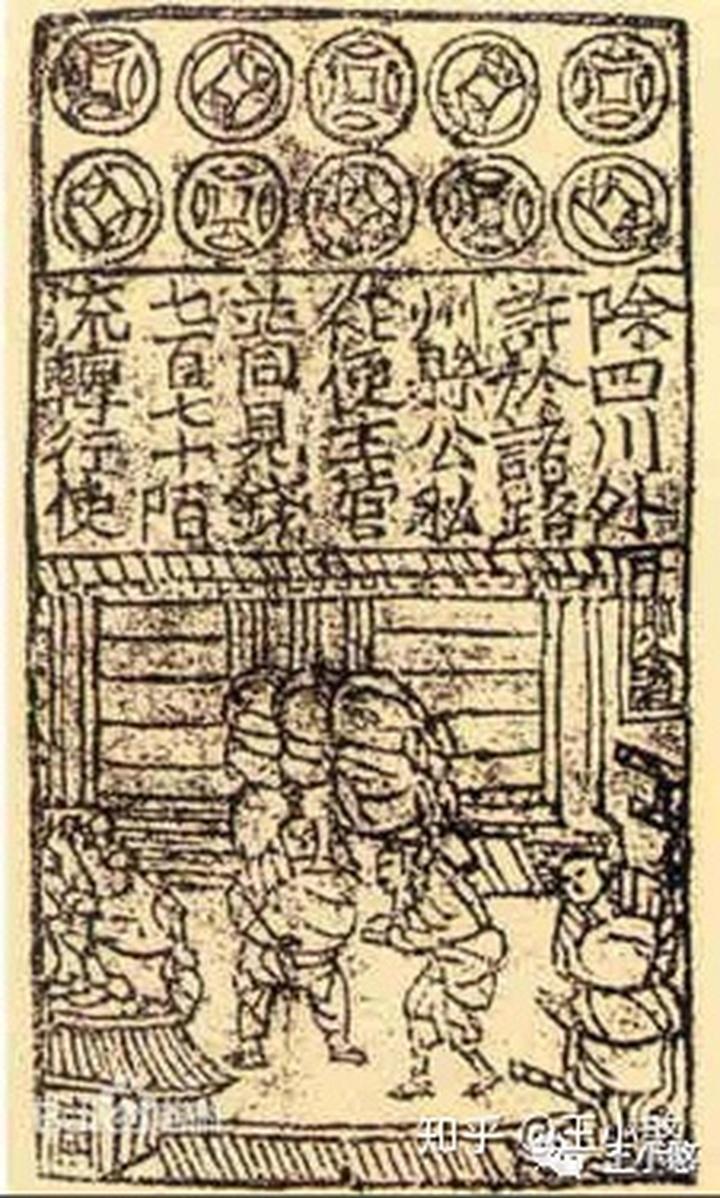 除四川外
許於諸路
州縣公私
從便主管
並同見錢
七百七十陌
流轉行使
知乎